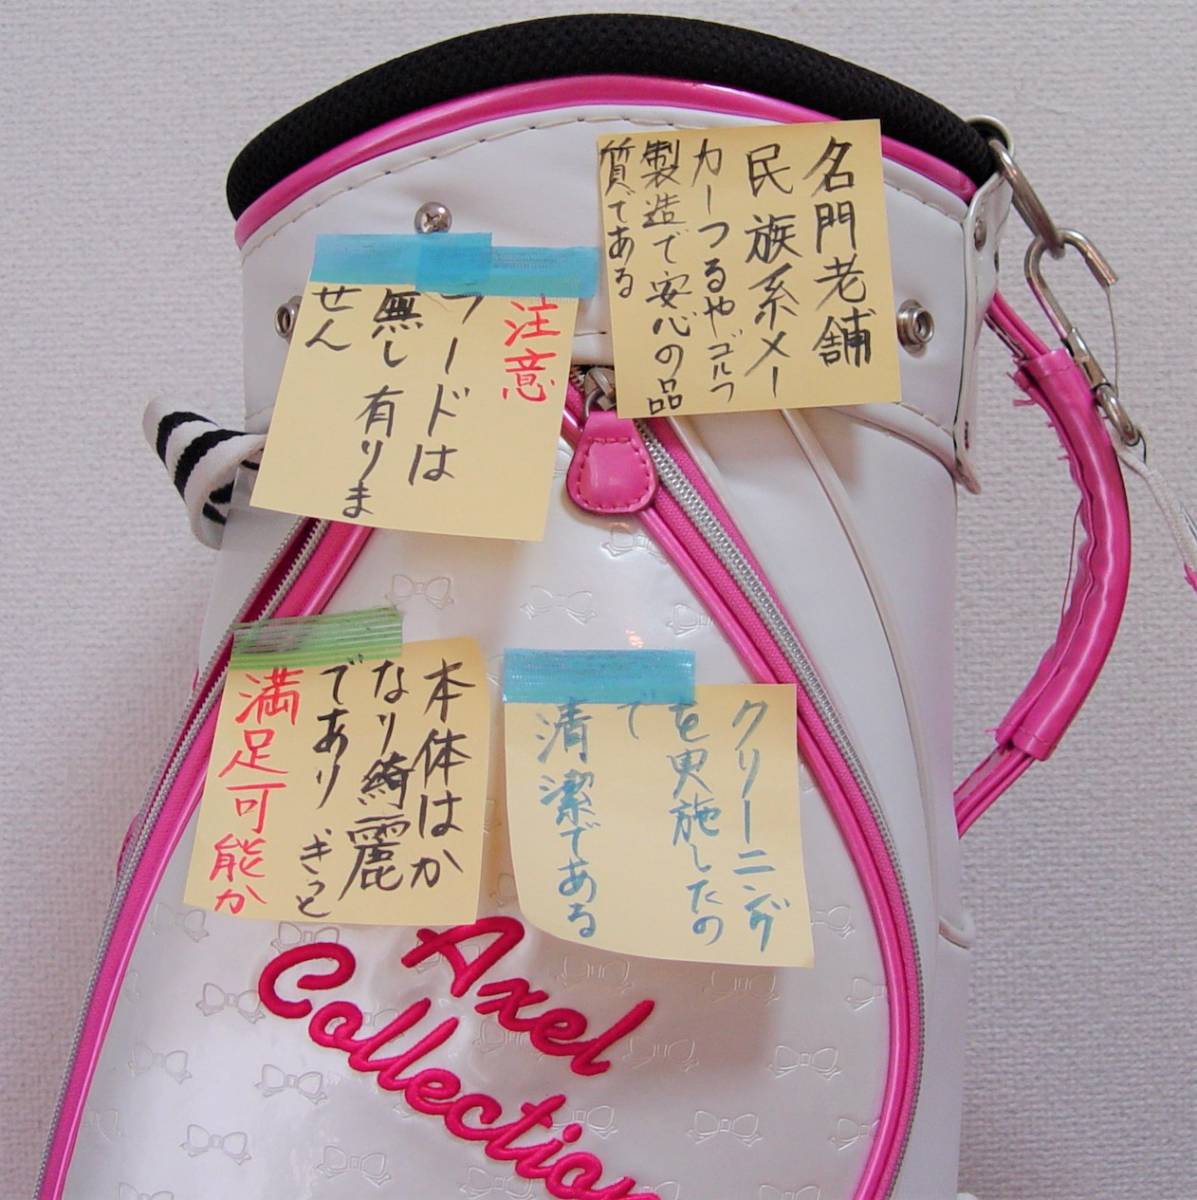 名門老舗
民族系メー
カーつるやゴルフ
製造で安心の品
質である
注意
フードは
無し有りま
せん
本体はか
なり綺麗
であり きっと
満足可能か
クリーニング
を実施したの
で
清潔である
Axel
Collection